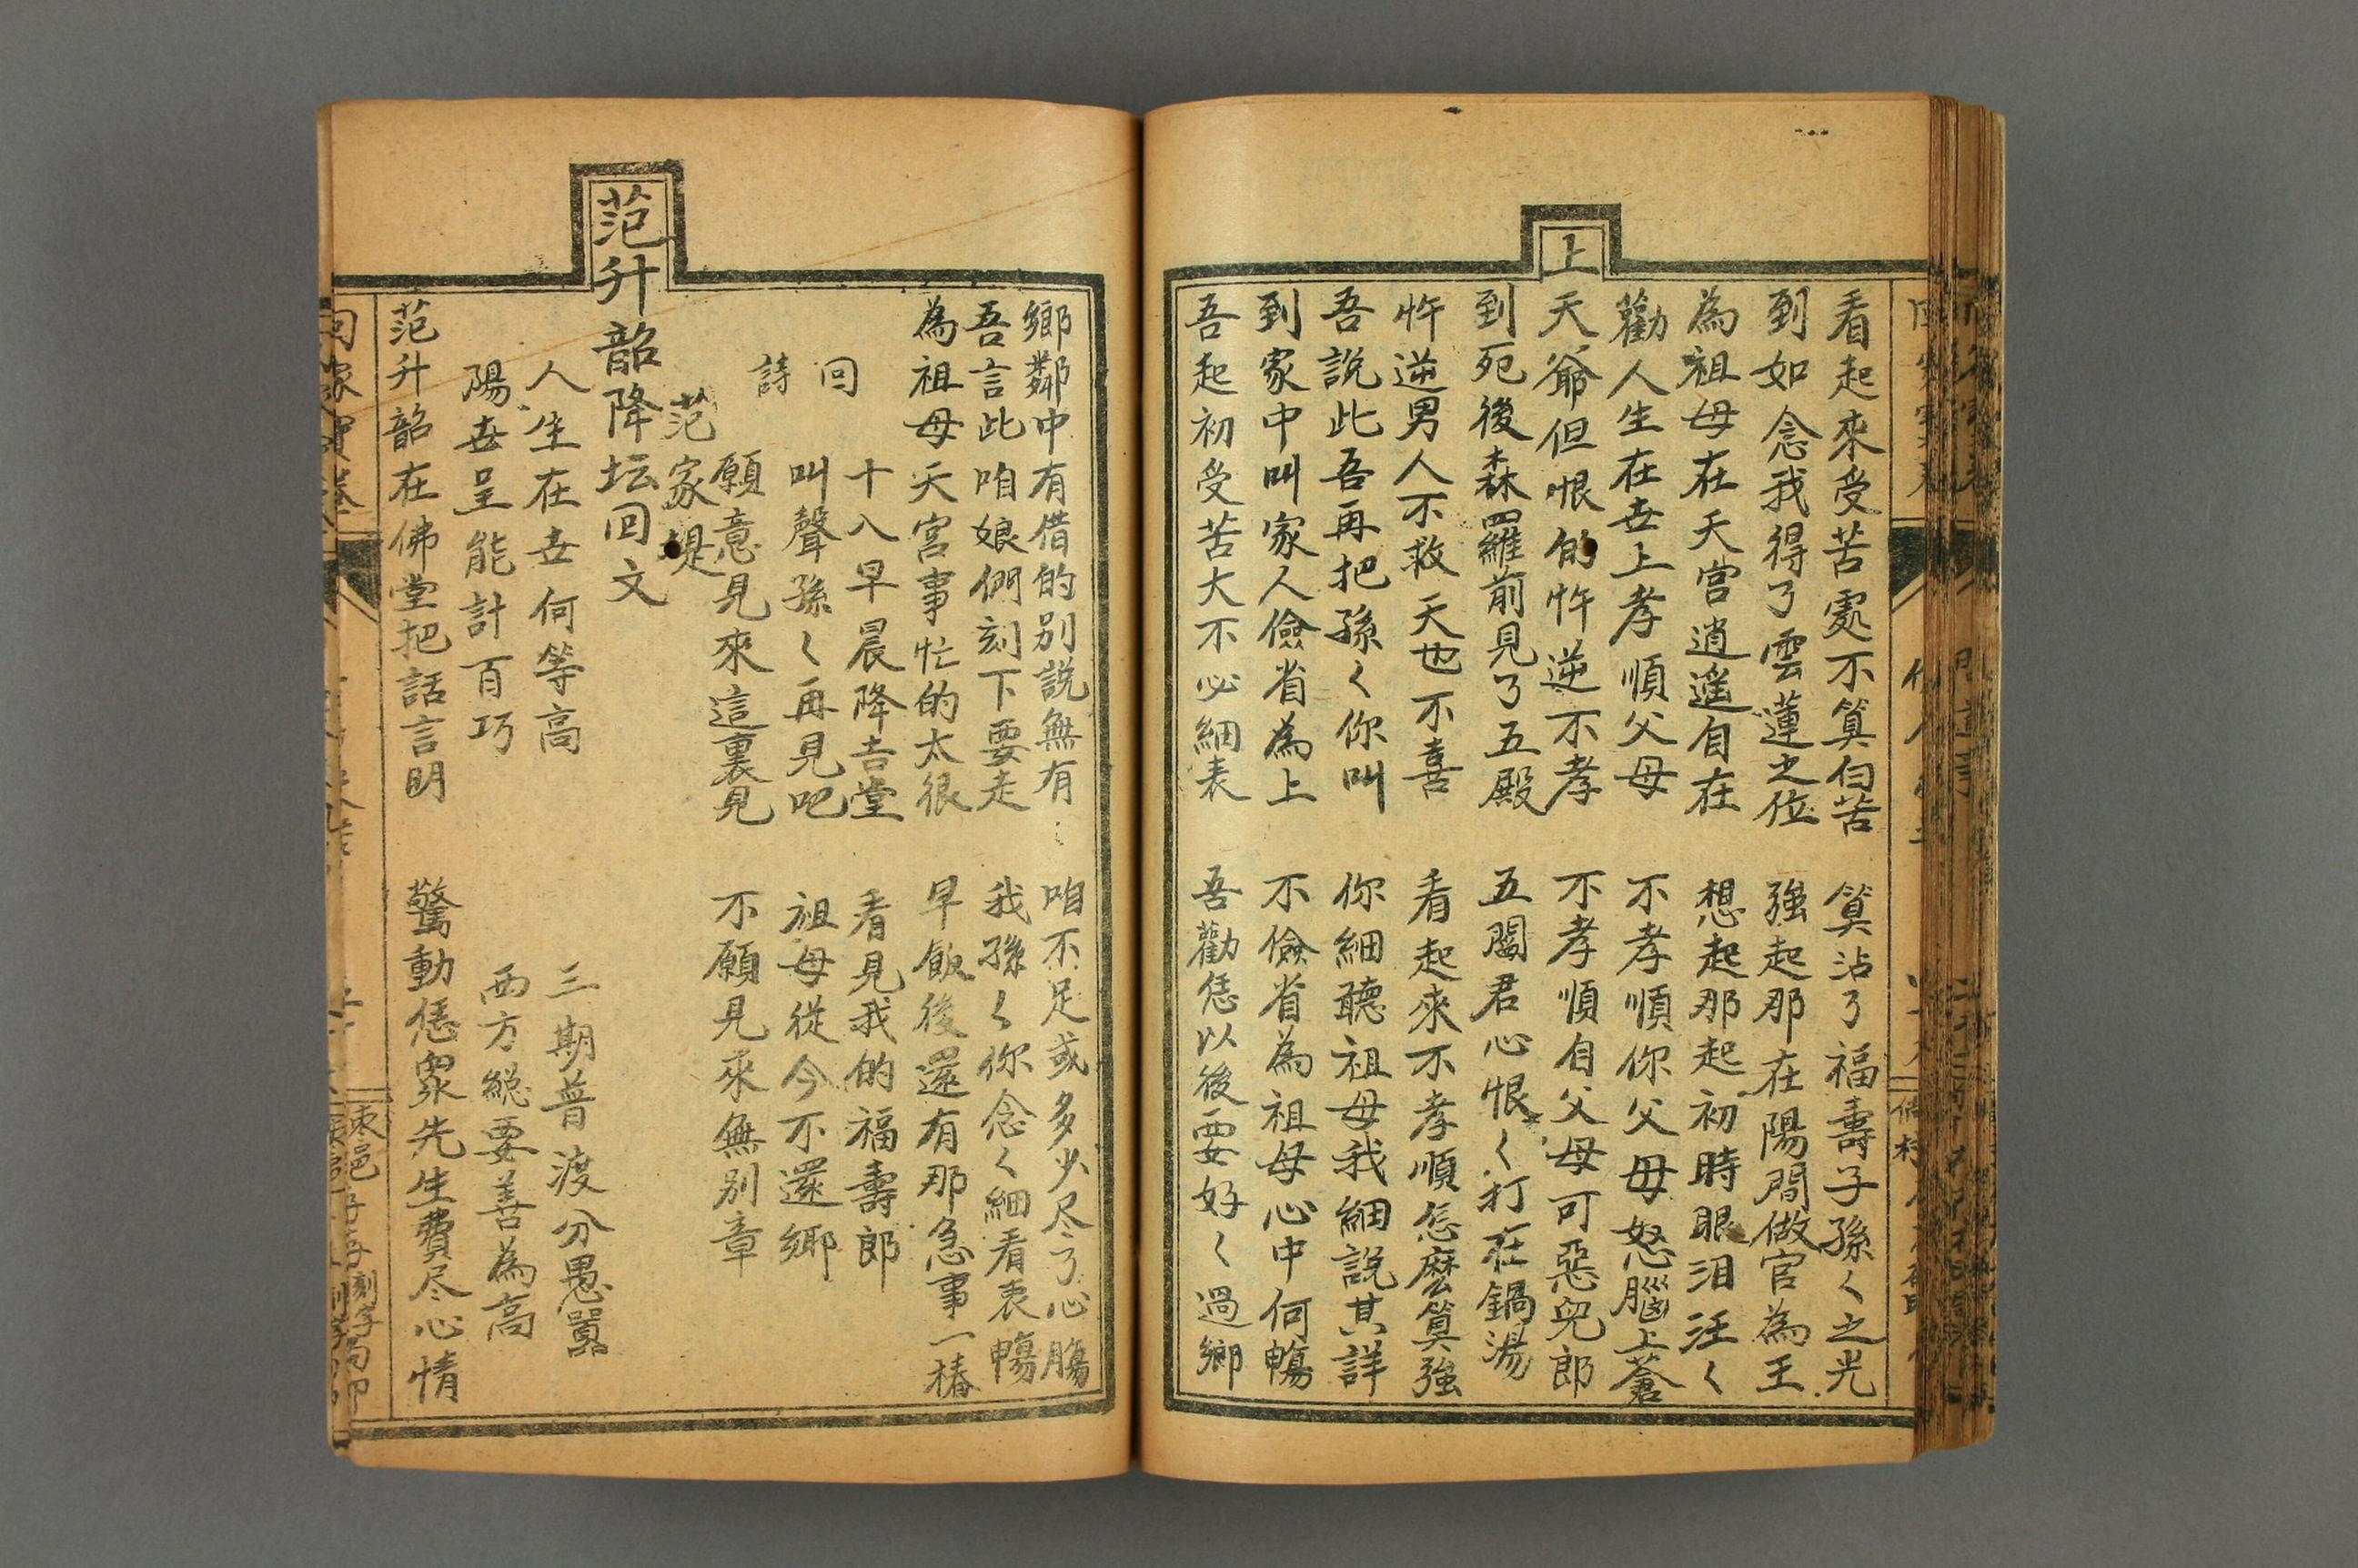 看起來受苦處不算白苦　算沾了福壽子孫〻之光
到如念我得了雲蓮之位　強起那在陽間做官為王
為祖母在天宮逍遥自在　想起那起初時眼泪汪〻
勸人生在𠀍上孝順父母　不孝順你父母怒腦上蒼
上天爺但恨的忤逆不孝　不孝順自父母可惡兒郎
到死後森羅前見了五殿　五閻君心恨〻打在鍋湯
忤逆男人不救天也不喜　看起來不孝順怎麽算強
吾說此吾再把孫〻你叫　你細聽祖母我細說其詳
到家中叫家人儉省為上　不儉省為祖母心中何暢
吾起初受苦大不必細表　吾勸恁以後要好〻過鄉
鄉鄰中有借的别說無有　咱不足或多少尽了心腸
吾言此咱娘們刻下要走　我孫〻你念〻細看衷暢
為祖母天宮事忙的太很　早飯後還有那急事一樁
回　十八早晨降吉堂　看見我的福壽郎
詩　叫聲孫〻再見吧　祖母從今不還鄉
願意見來這裏見　不願見來無别章
范家堤
范升韶降坛回文
人生在𠀍何等高　三期普渡分愚囂
陽𠀍呈能計百巧　西方總要善為高
范升韶在佛堂把話言明　驚動恁眾先生費尽心情